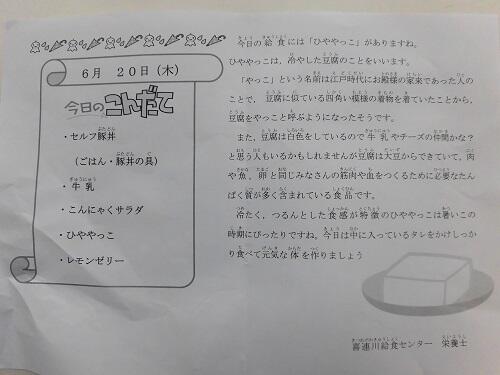 6月 20日(木)
今日のこんだて
・セルフ豚丼
(ごはん・豚丼の具)
・牛乳
・こんにゃくサラダ
・ひややっこ
・レモンゼリー
今日の給食には「ひややっこ」がありますね。
ひややっこは、冷やした豆腐のことをいいます。
「やっこ」という名前は江戸時代にお殿様の家来であった人の
ことで、豆腐に似ている四角い模様の着物を着ていたことから、
豆腐をやっこと呼ぶようになったそうです。
また、豆腐は白色をしているので牛乳やチーズの仲間かな?
と思う人もいるかもしれませんが豆腐は大豆からできていて、肉
や魚、卵と同じみなさんの筋肉や血をつくるために必要なたん
ぱく質が多く含まれている食品です。
冷たく、つるんとした食感が特徴のひややっこは暑いこの
時期にぴったりですね。今日は中に入っているタレをかけしっか
り食べて元気な体を作りましょう
喜連川給食センター 栄養士